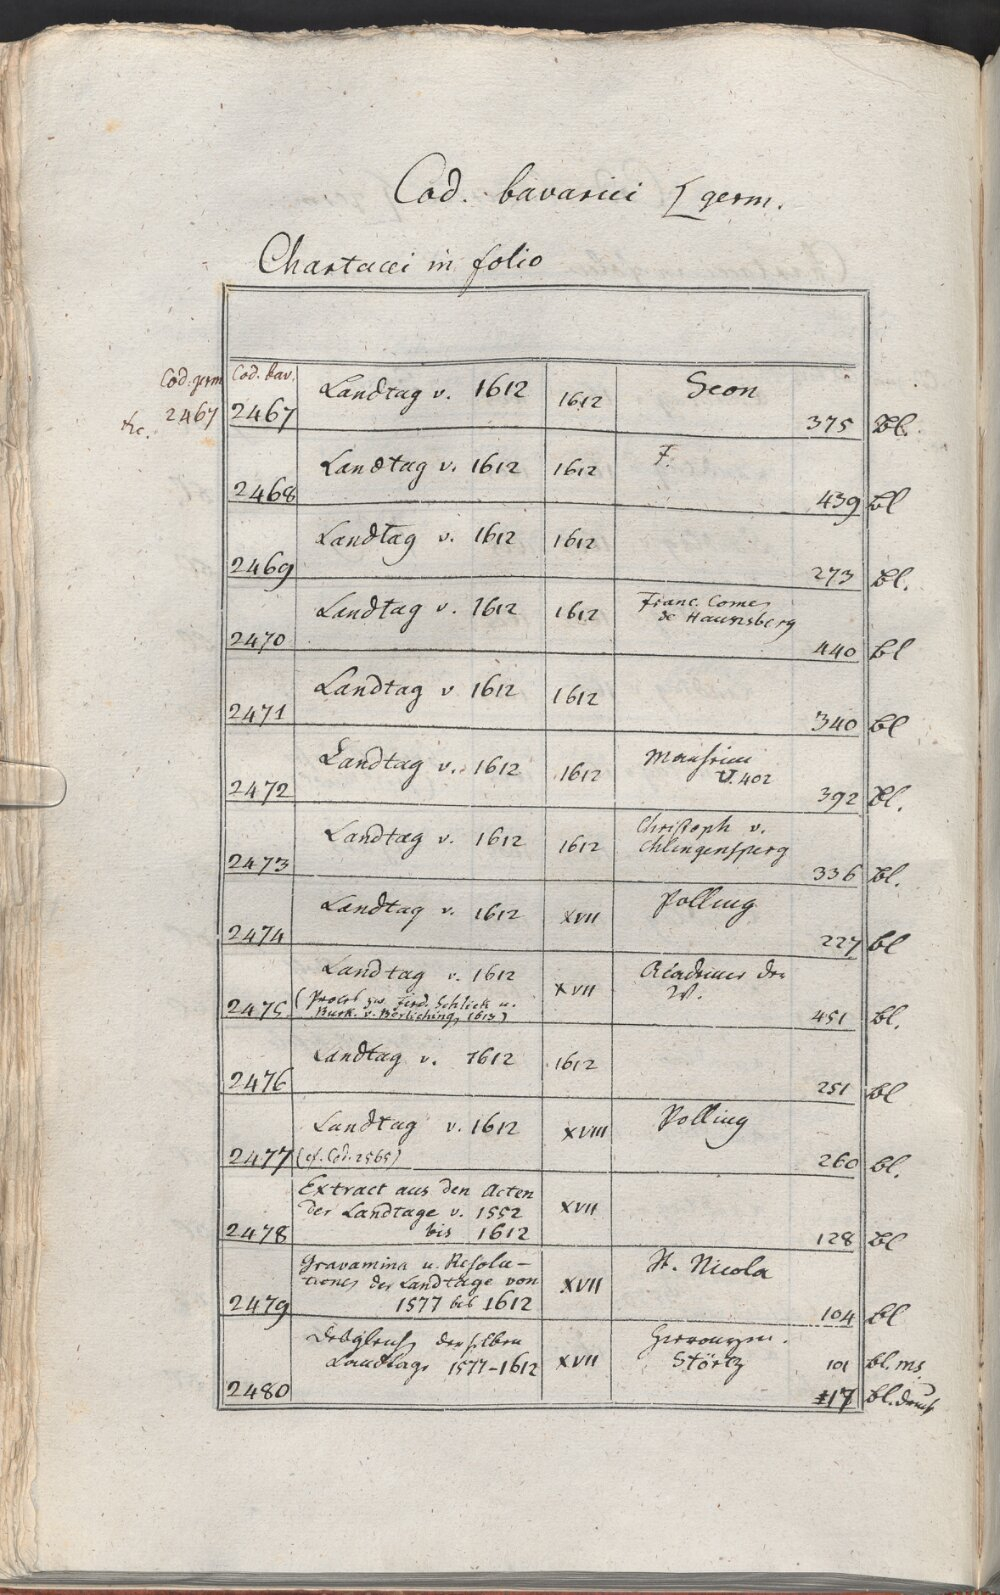 Cod. bavarici [germ.
Chartacei in folio
Cod. germ Cod. bav.
2467 2467 Landtag v. 1612 1612 Seon 375 Bl.
etc.
2468 Landtag v. 1612 1612 F. 439 bl
2469 Landtag v. 1612 1612 273 bl.
2470 Landtag v. 1612 1612 Franc. Comes
de Haunsberg 440 bl
2471 Landtag v 1612 1612 340 bl
2472 Landtag v. 1612 1612
V. 402 392 bl.
2473 Landtag v. 1612 1612 Christoph v.
Chlingensperg 336 bl.
2474 Landtag v. 1612 XVII Polling 227 bl
2475 Landtag v. 1612 XVII Academie der
W. 451 bl.
(Proceß zw. Ferd. Schlick u.
Burk. v. Berliching, 1613)
2476 Landtag v. 1612 1612 251 bl
2477 Landtag v. 1612 XVIII Polling 260 bl.
(cf. Cod. 2565)
2478 Extract aus den Acten
der Landtage v. 1552
bis 1612 XVII 128 bl
2479 Gravamina u. Resolu-
tiones der Landtage von
1577 bis 1612 XVII St. Nicola 104 bl
2480 Desgleich. derselben
Landtage 1577-1612 XVII Hieronym.
Störtz 101 bl. ms.
17 bl. druck